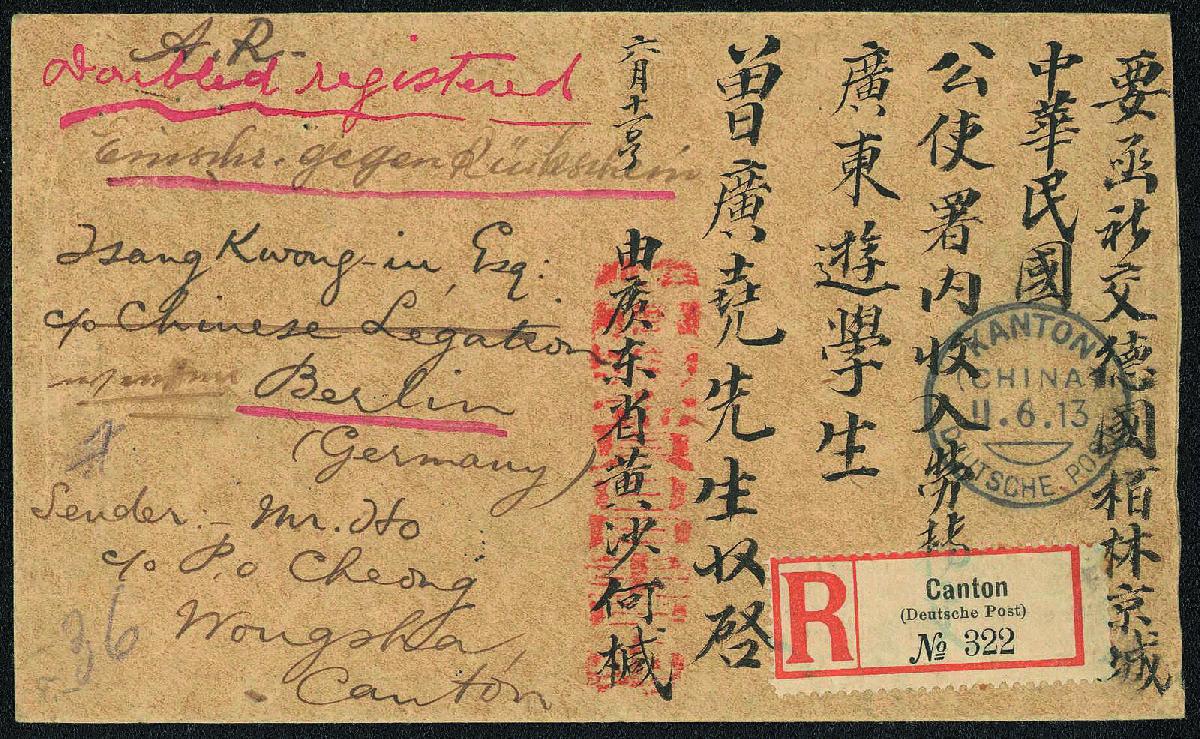 A.R.-
Doubled registered
Einschr. gegen Rückschein
Tsang Kwong-iu, Esq:
c/o Chinese Legation
Berlin
(Germany)
Sender:- Mr. Ho
c/o P.o Cheong
Wongsha,
Canton
36
要函祈交德國栢林京城
中華民國
公使署内收入勞轉
廣東遊學生
曾廣堯先生收啓
六月十一号
由廣东省黄沙何椷
KANTON
(CHINA)
11.6.13
DEUTSCHE POST
R
Canton
(Deutsche Post)
№ 322